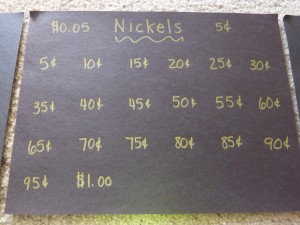 $0.05 Nickels 5¢
5¢ 10¢ 15¢ 20¢ 25¢ 30¢
35¢ 40¢ 45¢ 50¢ 55¢ 60¢
65¢ 70¢ 75¢ 80¢ 85¢ 90¢
95¢ $1.00